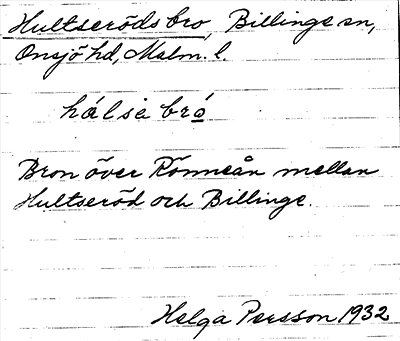 Hultseröds bro, Billinge sn,
Onsjö hd, Malm. l.
hálsa bró
Bron över Rönneån mellan
Hultseröd och Billinge.
Helga Persson 1932